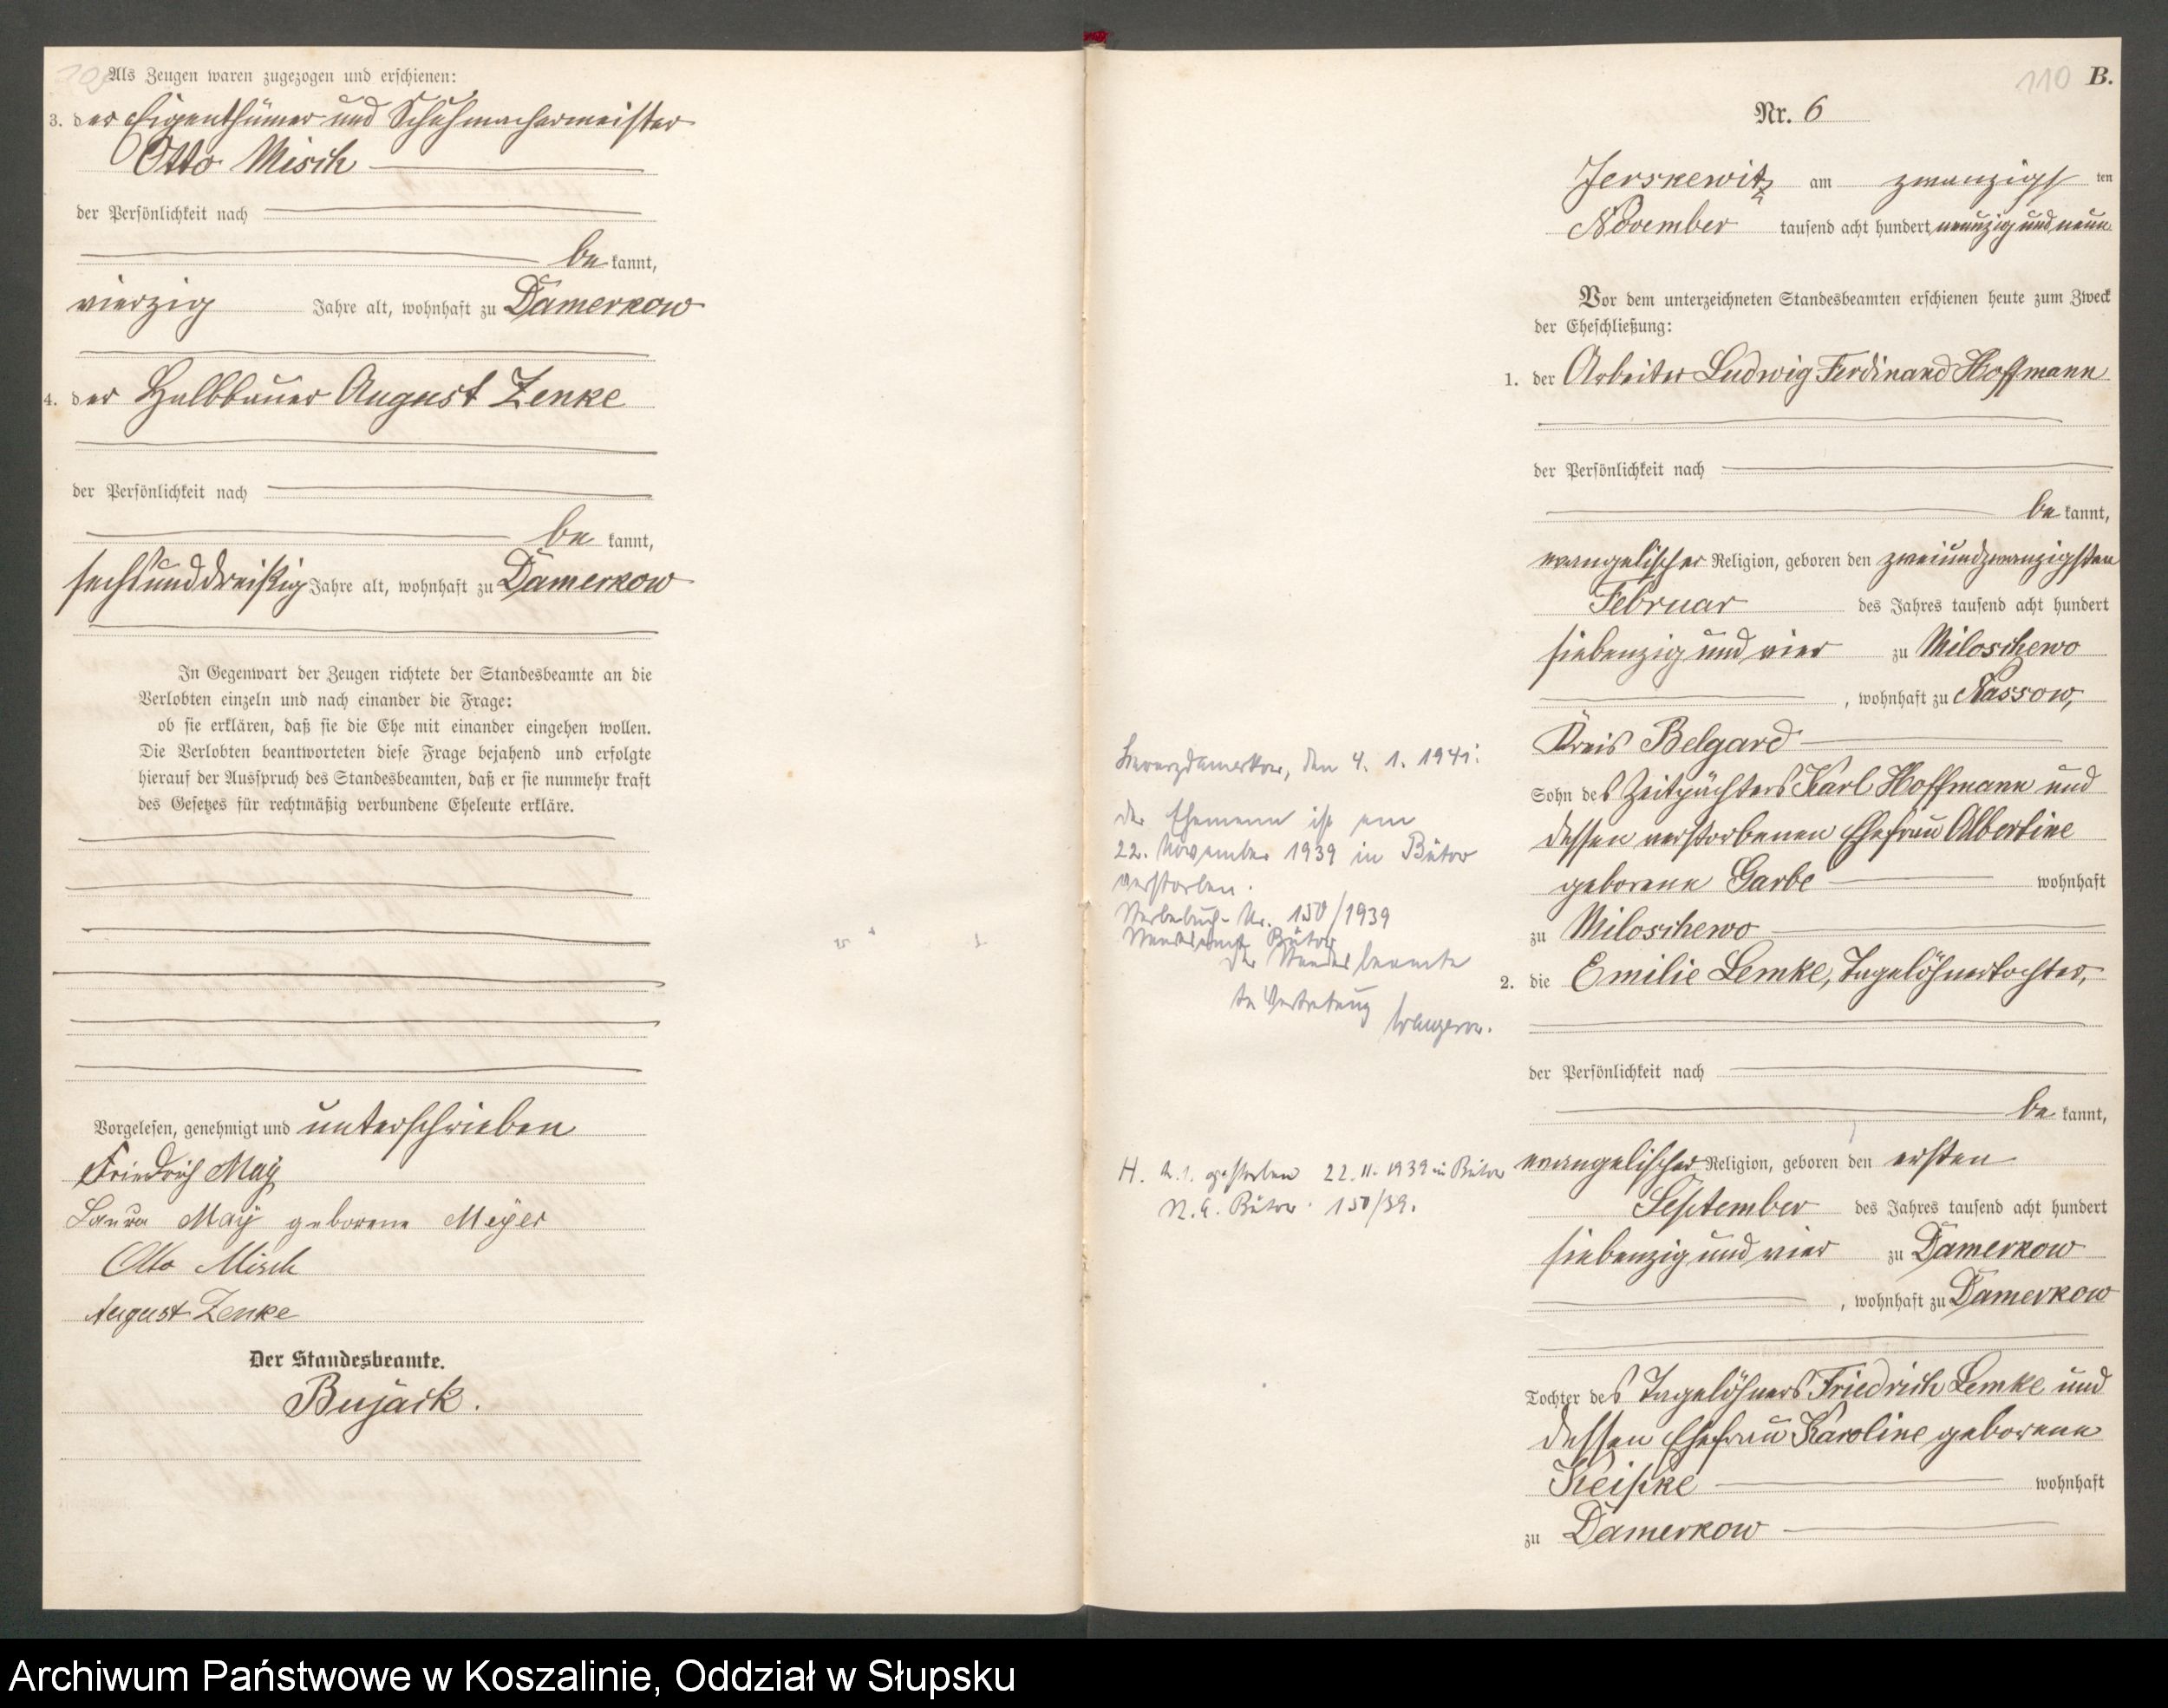 Als Zeugen waren zugezogen und erschienen:
3. der Eigenthümer und Schuhmachermeister
Otto Misch
der Persönlichkeit nach
be kannt,
vierzig Jahre alt, wohnhaft zu Damerkow
4. der Halbbauer August Zenke
der Persönlichkeit nach
be kannt,
sechsunddreißig Jahre alt, wohnhaft zu Damerkow
In Gegenwart der Zeugen richtete der Standesbeamte an die
Verlobten einzeln und nach einander die Frage:
ob sie erklären, daß sie die Ehe mit einander eingehen wollen.
Die Verlobten beantworteten diese Frage bejahend und erfolgte
hierauf der Ausspruch des Standesbeamten, daß er sie nunmehr kraft
des Gesetzes für rechtmäßig verbundene Eheleute erkläre.
Vorgelesen, genehmigt und unterschrieben
Friedrich Maÿ
Laura Maÿ geborene Meyer
Otto Misch
August Zenke
Der Standesbeamte.
Bujack.
110 B.
Nr. 6
Jerskewitz am zwanzigsten
November tausend acht hundert neunzig und neun
Vor dem unterzeichneten Standesbeamten erschienen heute zum Zweck
der Eheschließung:
1. der Arbeiter Ludwig Ferdinand Hoffmann
der Persönlichkeit nach
be kannt,
evangelischer Religion, geboren den zweiundzwanzigsten
Februar des Jahres tausend acht hundert
siebenzig und vier zu Miloschewo
, wohnhaft zu Nassow,
Kreis Belgard
Sohn des Zeitpächters Karl Hoffmann und
dessen verstorbenen Ehefrau Albertine
geborene Garbe wohnhaft
zu Miloschewo
2. die Emilie Lemke, Tagelöhnertochter,
der Persönlichkeit nach
be kannt,
evangelischer Religion, geboren den ersten
September des Jahres tausend acht hundert
siebenzig und vier zu Damerkow
, wohnhaft zu Damerkow
Tochter des Tagelöhners Friedrich Lemke und
dessen Ehefrau Karoline geborene
Keiske wohnhaft
zu Damerkow
Schwarzdamerkow, den 4. 1. 1941.
Der Ehemann ist am
22. November 1939 in Bütow
verstorben.
Sterbebuch-Nr. 150/1939
Standesamt Bütow
Der Standesbeamte
In Vertretung
H. a. 1. gestorben 22.11.1939 in Bütow
St. A. Bütow 150/39.
Archiwum Państwowe w Koszalinie, Oddział w Słupsku